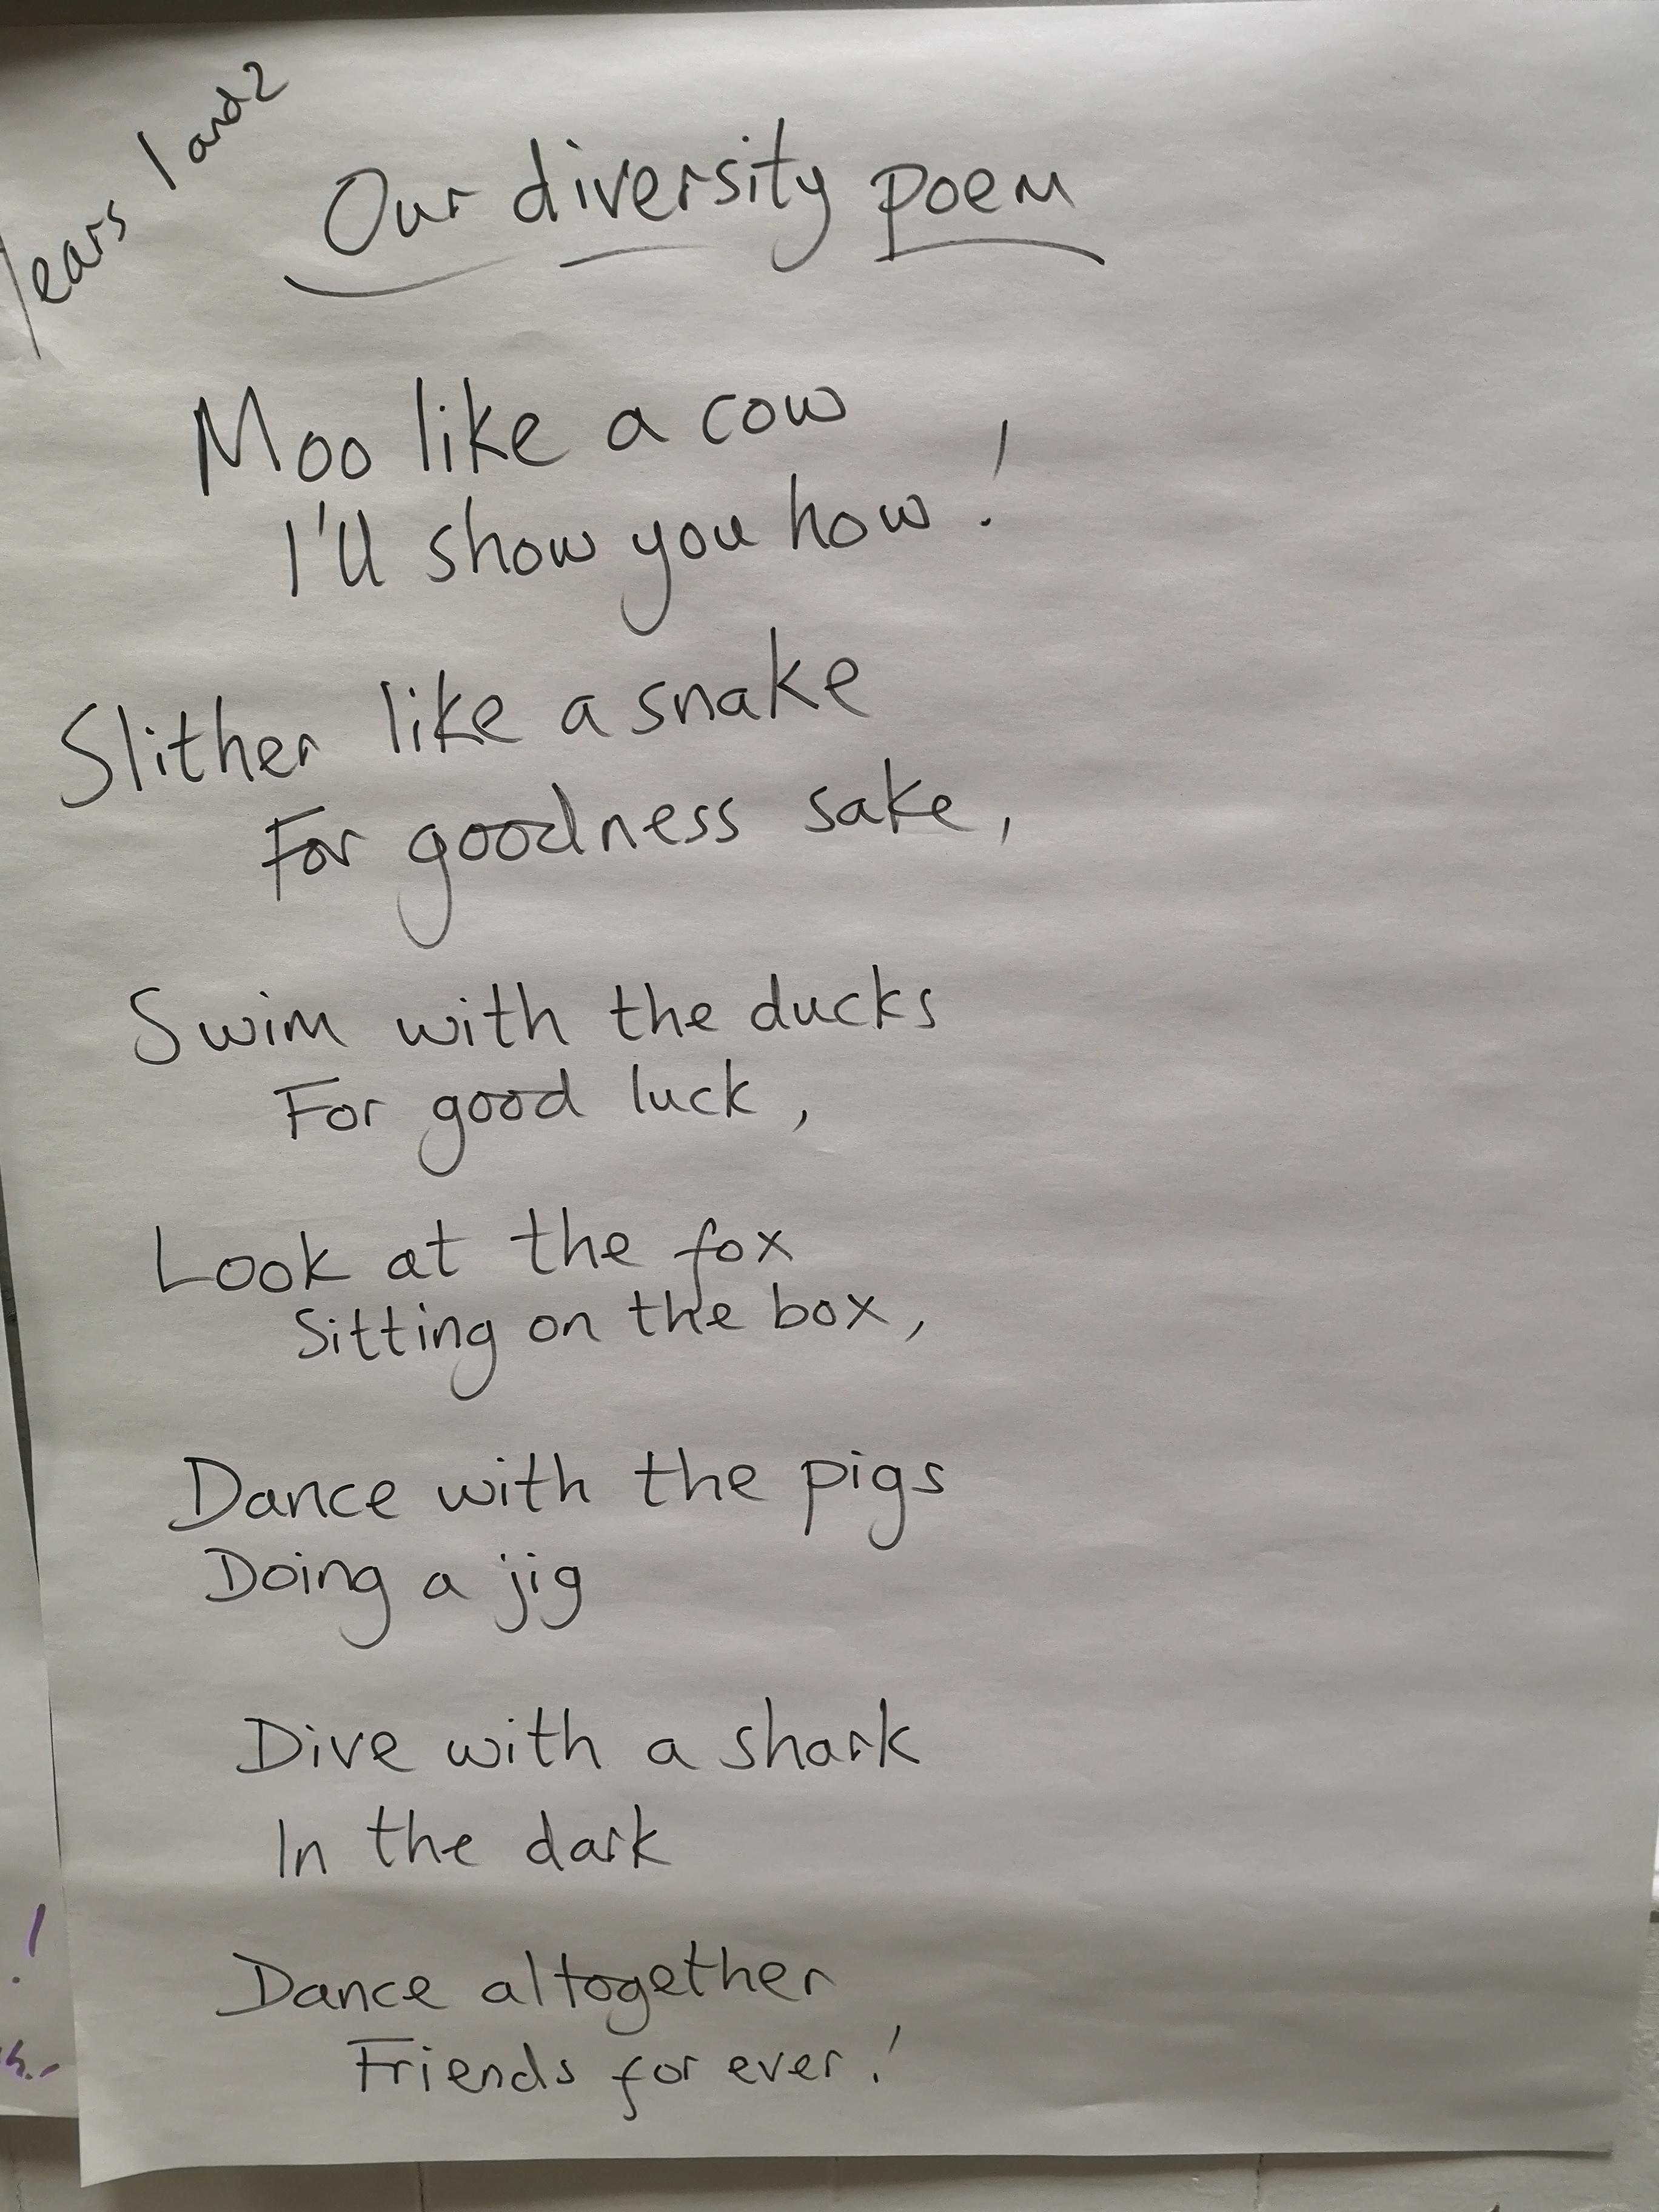 Years 1 and 2
Our diversity poem
Moo like a cow
I'll show you how!
Slither like a snake
For goodness sake,
Swim with the ducks
For good luck,
Look at the fox
Sitting on the box,
Dance with the pigs
Doing a jig
Dive with a shark
In the dark
Dance altogether
Friends for ever!